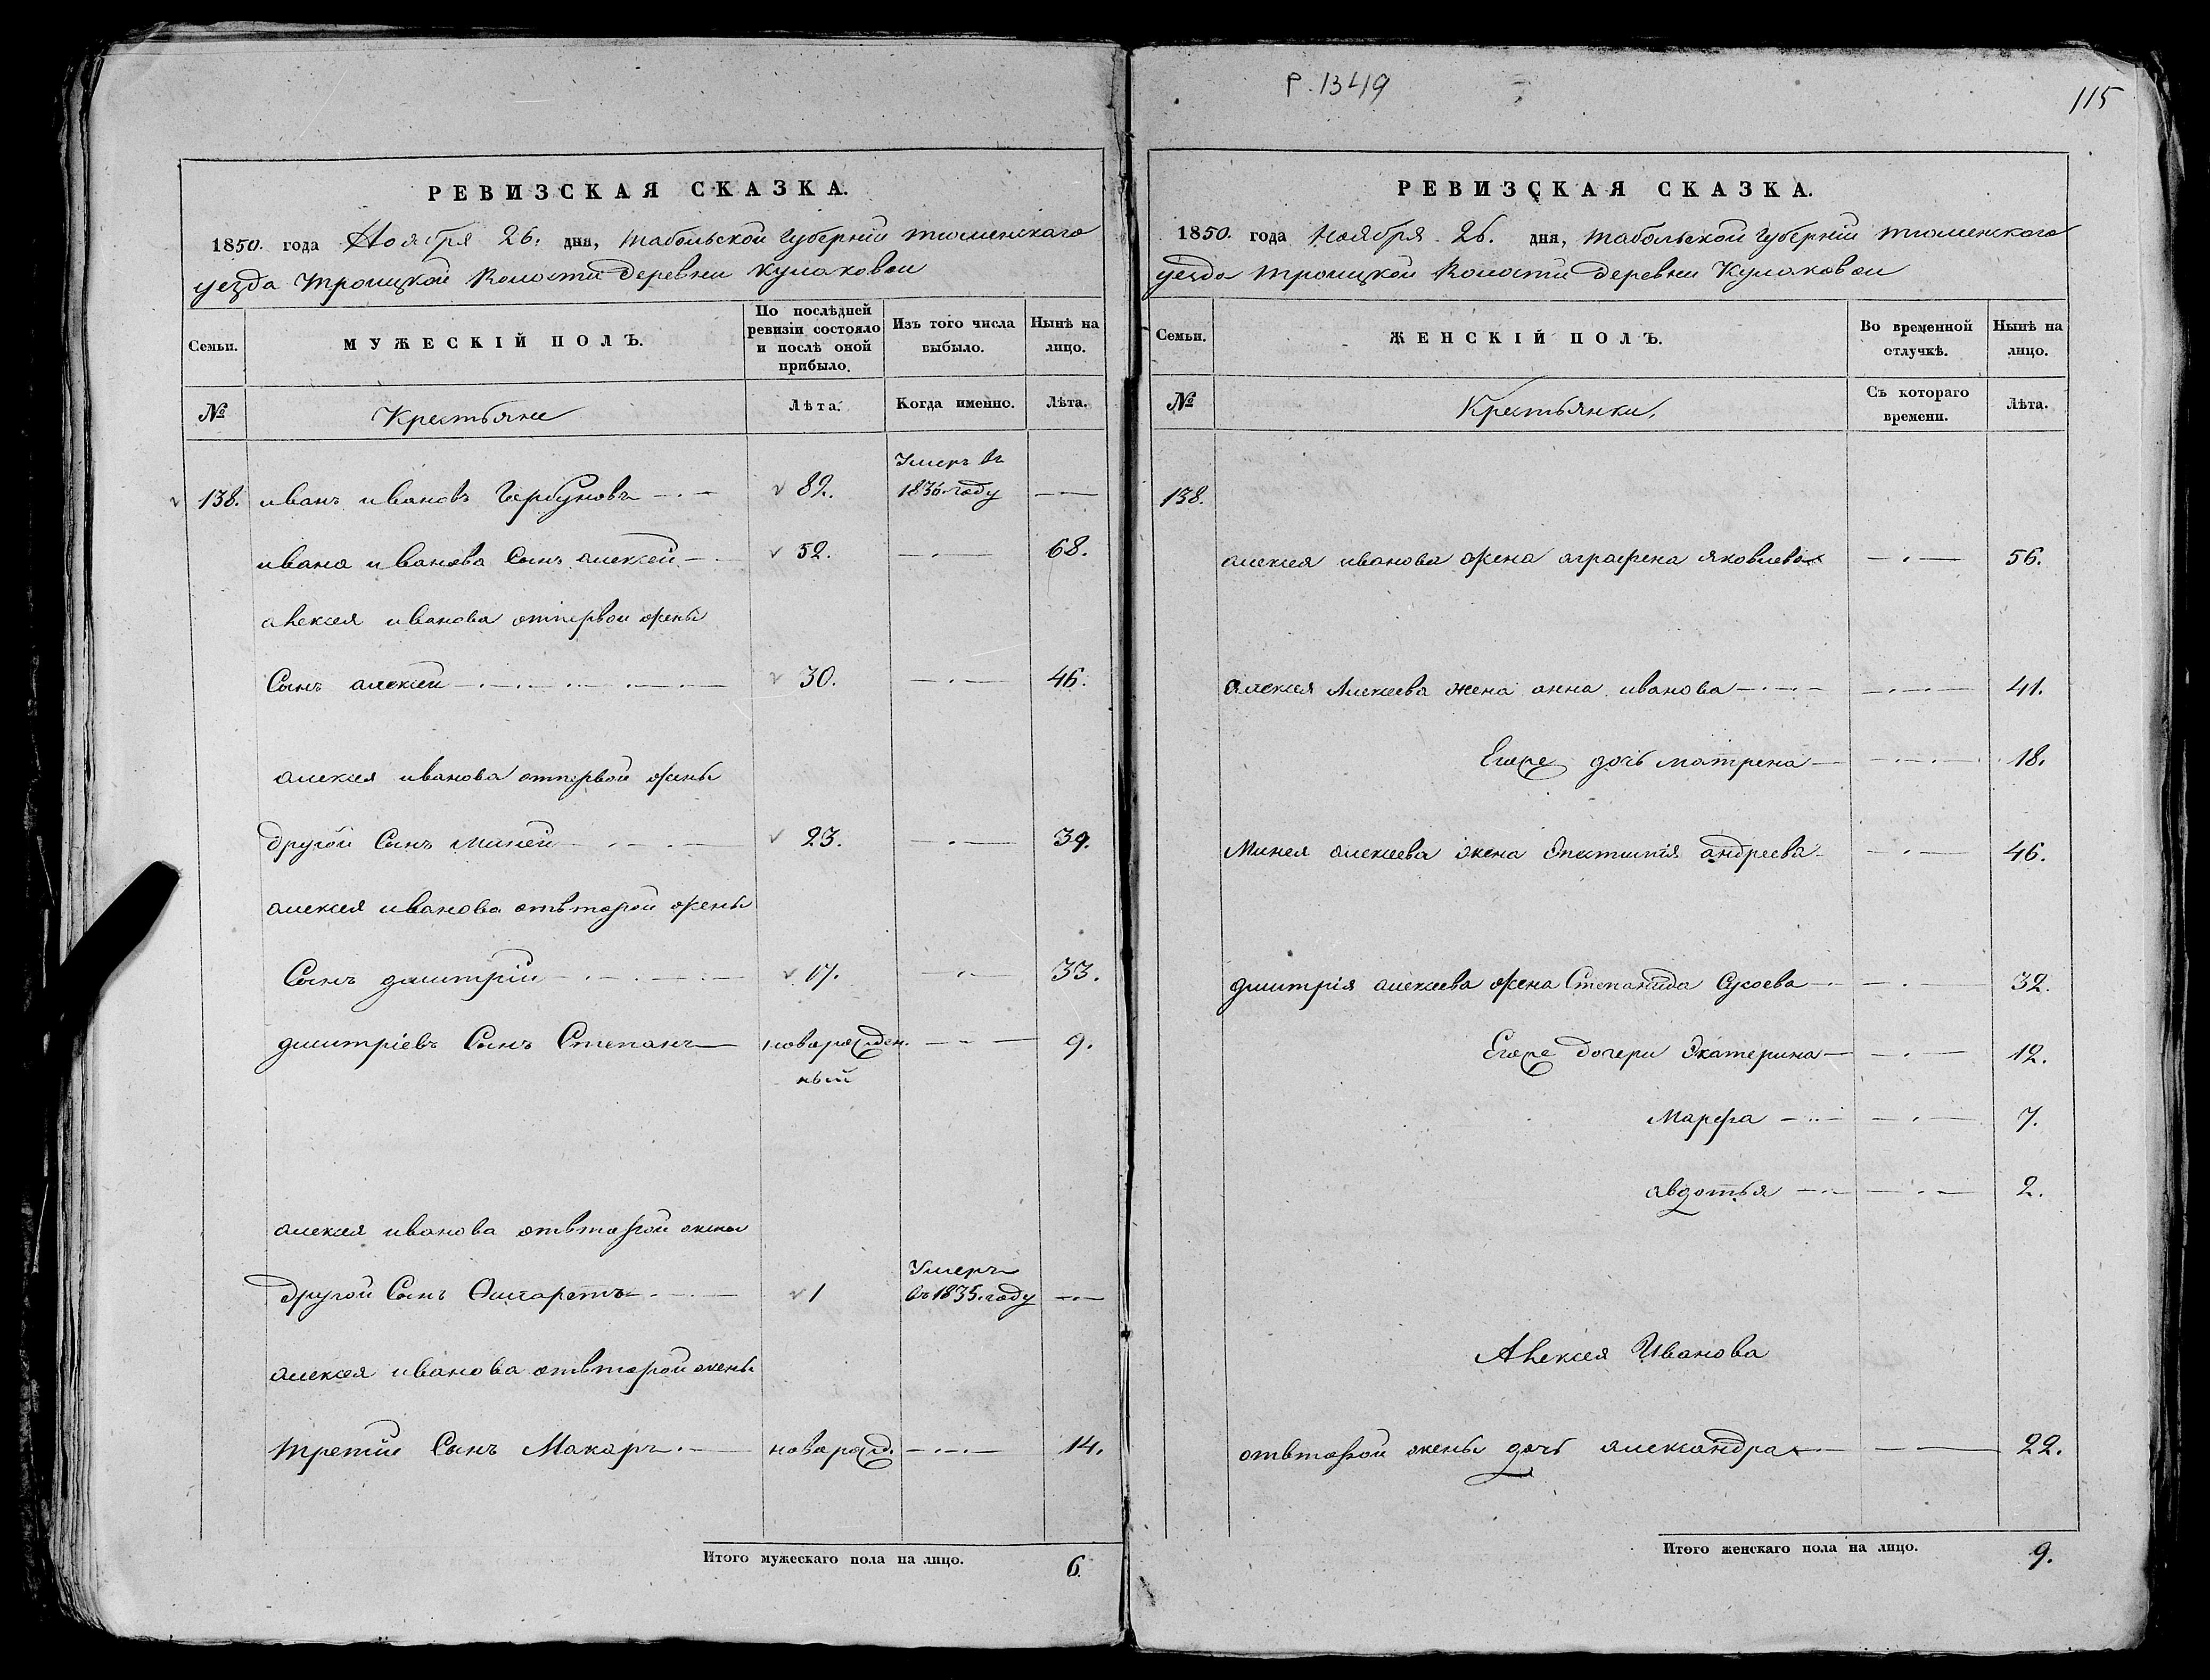 Р. 1349
115
РЕВИЗСКАЯ СКАЗКА.
1850. года Ноября 26. дня, Табольской Губернии тюменскаго
уезда Троицкой Волости деревни кулаковой
Семьи.
МУЖЕСКІЙ ПОЛЪ.
По послѣдней ревизіи состояло и послѣ оной прибыло.
Изъ того числа выбыло.
Нынѣ на лицо.
№
Крестьяне
Лѣта.
Когда именно.
Лѣта.
138. иванъ ивановъ Горбуновъ 82. Умеръ въ 1836. году
ивана иванова Сынъ алексей 52. 68.
алексея иванова отпервои жены
Сынъ алексеи 30. 46.
алексея иванова отпервой жены
другой Сынъ миней 23. 39.
алексея иванова отвторои жены
Сынъ дмитрій 17. 33.
дмитріевъ Сынъ Степанъ новарожден. 9.
ный
алексея иванова отвторой жены
другой Сынъ 1 Умеръ въ 1835. году
алексея иванова отвторой жены
третий Сынъ Макаръ. новорожд. 14.
Итого мужескаго пола на лицо. 6
РЕВИЗСКАЯ СКАЗКА.
1850. года Ноября 26. дня, Табольской Губернии тюменского
уезда троицкой Волости деревни Кулаковои
Семьи.
ЖЕНСКІЙ ПОЛЪ.
Во временной отлучкѣ.
Нынѣ на лицо.
№
Крестьянки.
Съ котораго времени.
Лѣта.
138.
алексея иванова жена аграфена яковлева 56.
алексея Алексеева жена анна иванова 41.
Егоже дочь матрена 18.
Минея алексеева жена андреева 46.
дмитрія алексеева жена Степанида 32.
Егоже дочери Екатерина 12.
Марфа 7.
авдотья 2.
Алексея Иванова
отвторой жены дочь александра 22.
Итого женскаго пола на лицо. 9.